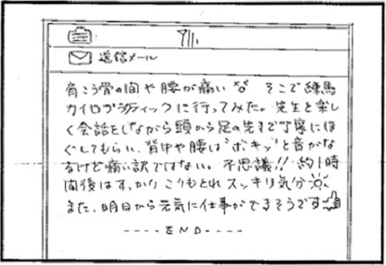 送信メール
肩こう骨の間や腰が痛い そこで練馬
カイロプラティックに行ってみた。先生と楽し
く会話をしながら頭から足の先まで丁寧にほ
ぐしてもらい、背中や腰は"ボキッ"と音がな
るけど痛い訳ではない。不思議!! 約1時
間後はすっかりこりもとれスッキリ気分
また、明日から元気に仕事ができそうです
----END----